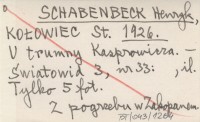 SCHABENBECK Henryk,
KOŁOWIEC St. 1926.
W trumny Kasprowicza. —
Światowid 3, nr 33: , il.
Tylko 5 fot.
z pogrzebu w Zakopanem.
BT/043/1284